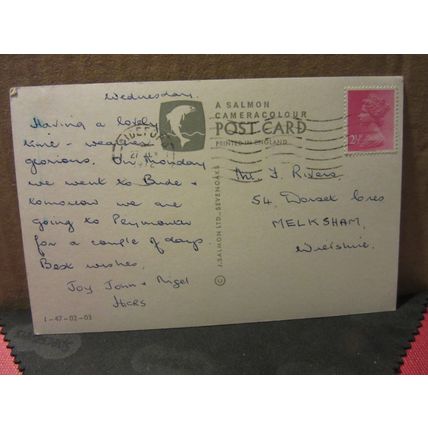 Wednesday.
Having a lovely
time - weather
glorious. On Monday
we went to Bude &
tomorrow we are
going to Plymouth
for a couple of days.
Best wishes,
Joy John & Nigel
A SALMON
CAMERACOLOUR
POST CARD
PRINTED IN ENGLAND
2½P
Mr. J. Rivers
54, Dorset Cres
MELKSHAM,
Wiltshire.
J. SALMON LTD., SEVENOAKS
1-47-02-03